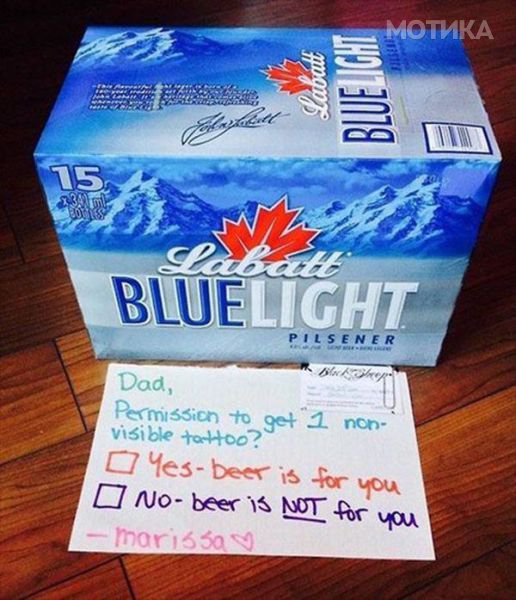 МОТИКА
Labatt
BLUE LIGHT
PILSENER
John Labatt
15
x 341 ml
BOTTLES
Labatt
BLUELIGHT
PILSENER
Black Sheep
Dad,
Permission to get 1 non-
visible tattoo?
Yes - beer is for you
No - beer is NOT for you
- marissa ♡